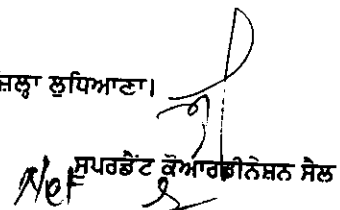 ਜ਼ਿਲ੍ਹਾ ਲੁਧਿਆਣਾ।
ਸੁਪਰਡੈਂਟ ਕੋਆਰਡੀਨੇਸ਼ਨ ਸੈਲ